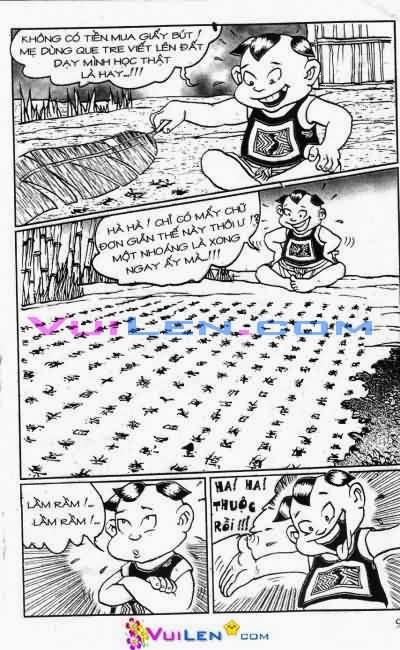 KHÔNG CÓ TIỀN MUA GIẤY BÚT !
MẸ DÙNG QUE TRE VIẾT LÊN ĐẤT
DẠY MÌNH HỌC THẬT
LÀ HAY...!!!
HÀ HÀ ! CHỈ CÓ MẤY CHỮ
ĐƠN GIẢN THẾ NÀY THÔI Ư !?
MỘT NHOÁNG LÀ XONG
NGAY ẤY MÀ...!!!
VuiLen.com
LẦM RẦM !...
LẦM RẦM !...
HA! HA!
THUỘC
RỒI !!!
9
VuiLen.com